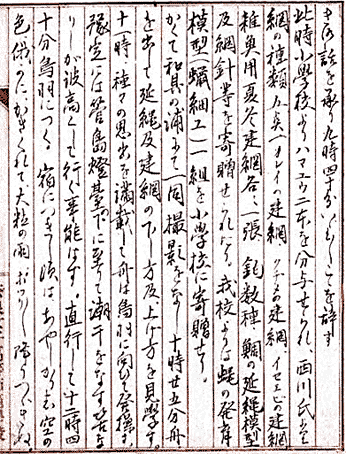 き御話を承り九時四十分いしくこを辞す
此時小学校よりハマユウ二本を分与せられ、西川氏を
網の種類五点(カレイの建網 クチメの建網、イセエビの建網
雑魚用夏冬建網各一張 釣数種 鯛の延縄模型
及網針等を寄贈せられたり。我校よりは蝿の発育
模型(蝋細工)一組を小学校に寄贈せり。
かくて和具の浦にて一同撮影をなし 十時廿五分舟
を出して延縄及建網の下し方及、上げ方を見学す。
十一時種々の思出を満載して舟は鳥羽に向ひて発操す。
予定には菅島燈台下に至りて潮干をなす筈な
りしが波高くして行く事能はず、直行して十二時四
十分鳥羽につく 宿につきし頃はあやしかりし空の
色俄かにかきくれて大粒の雨